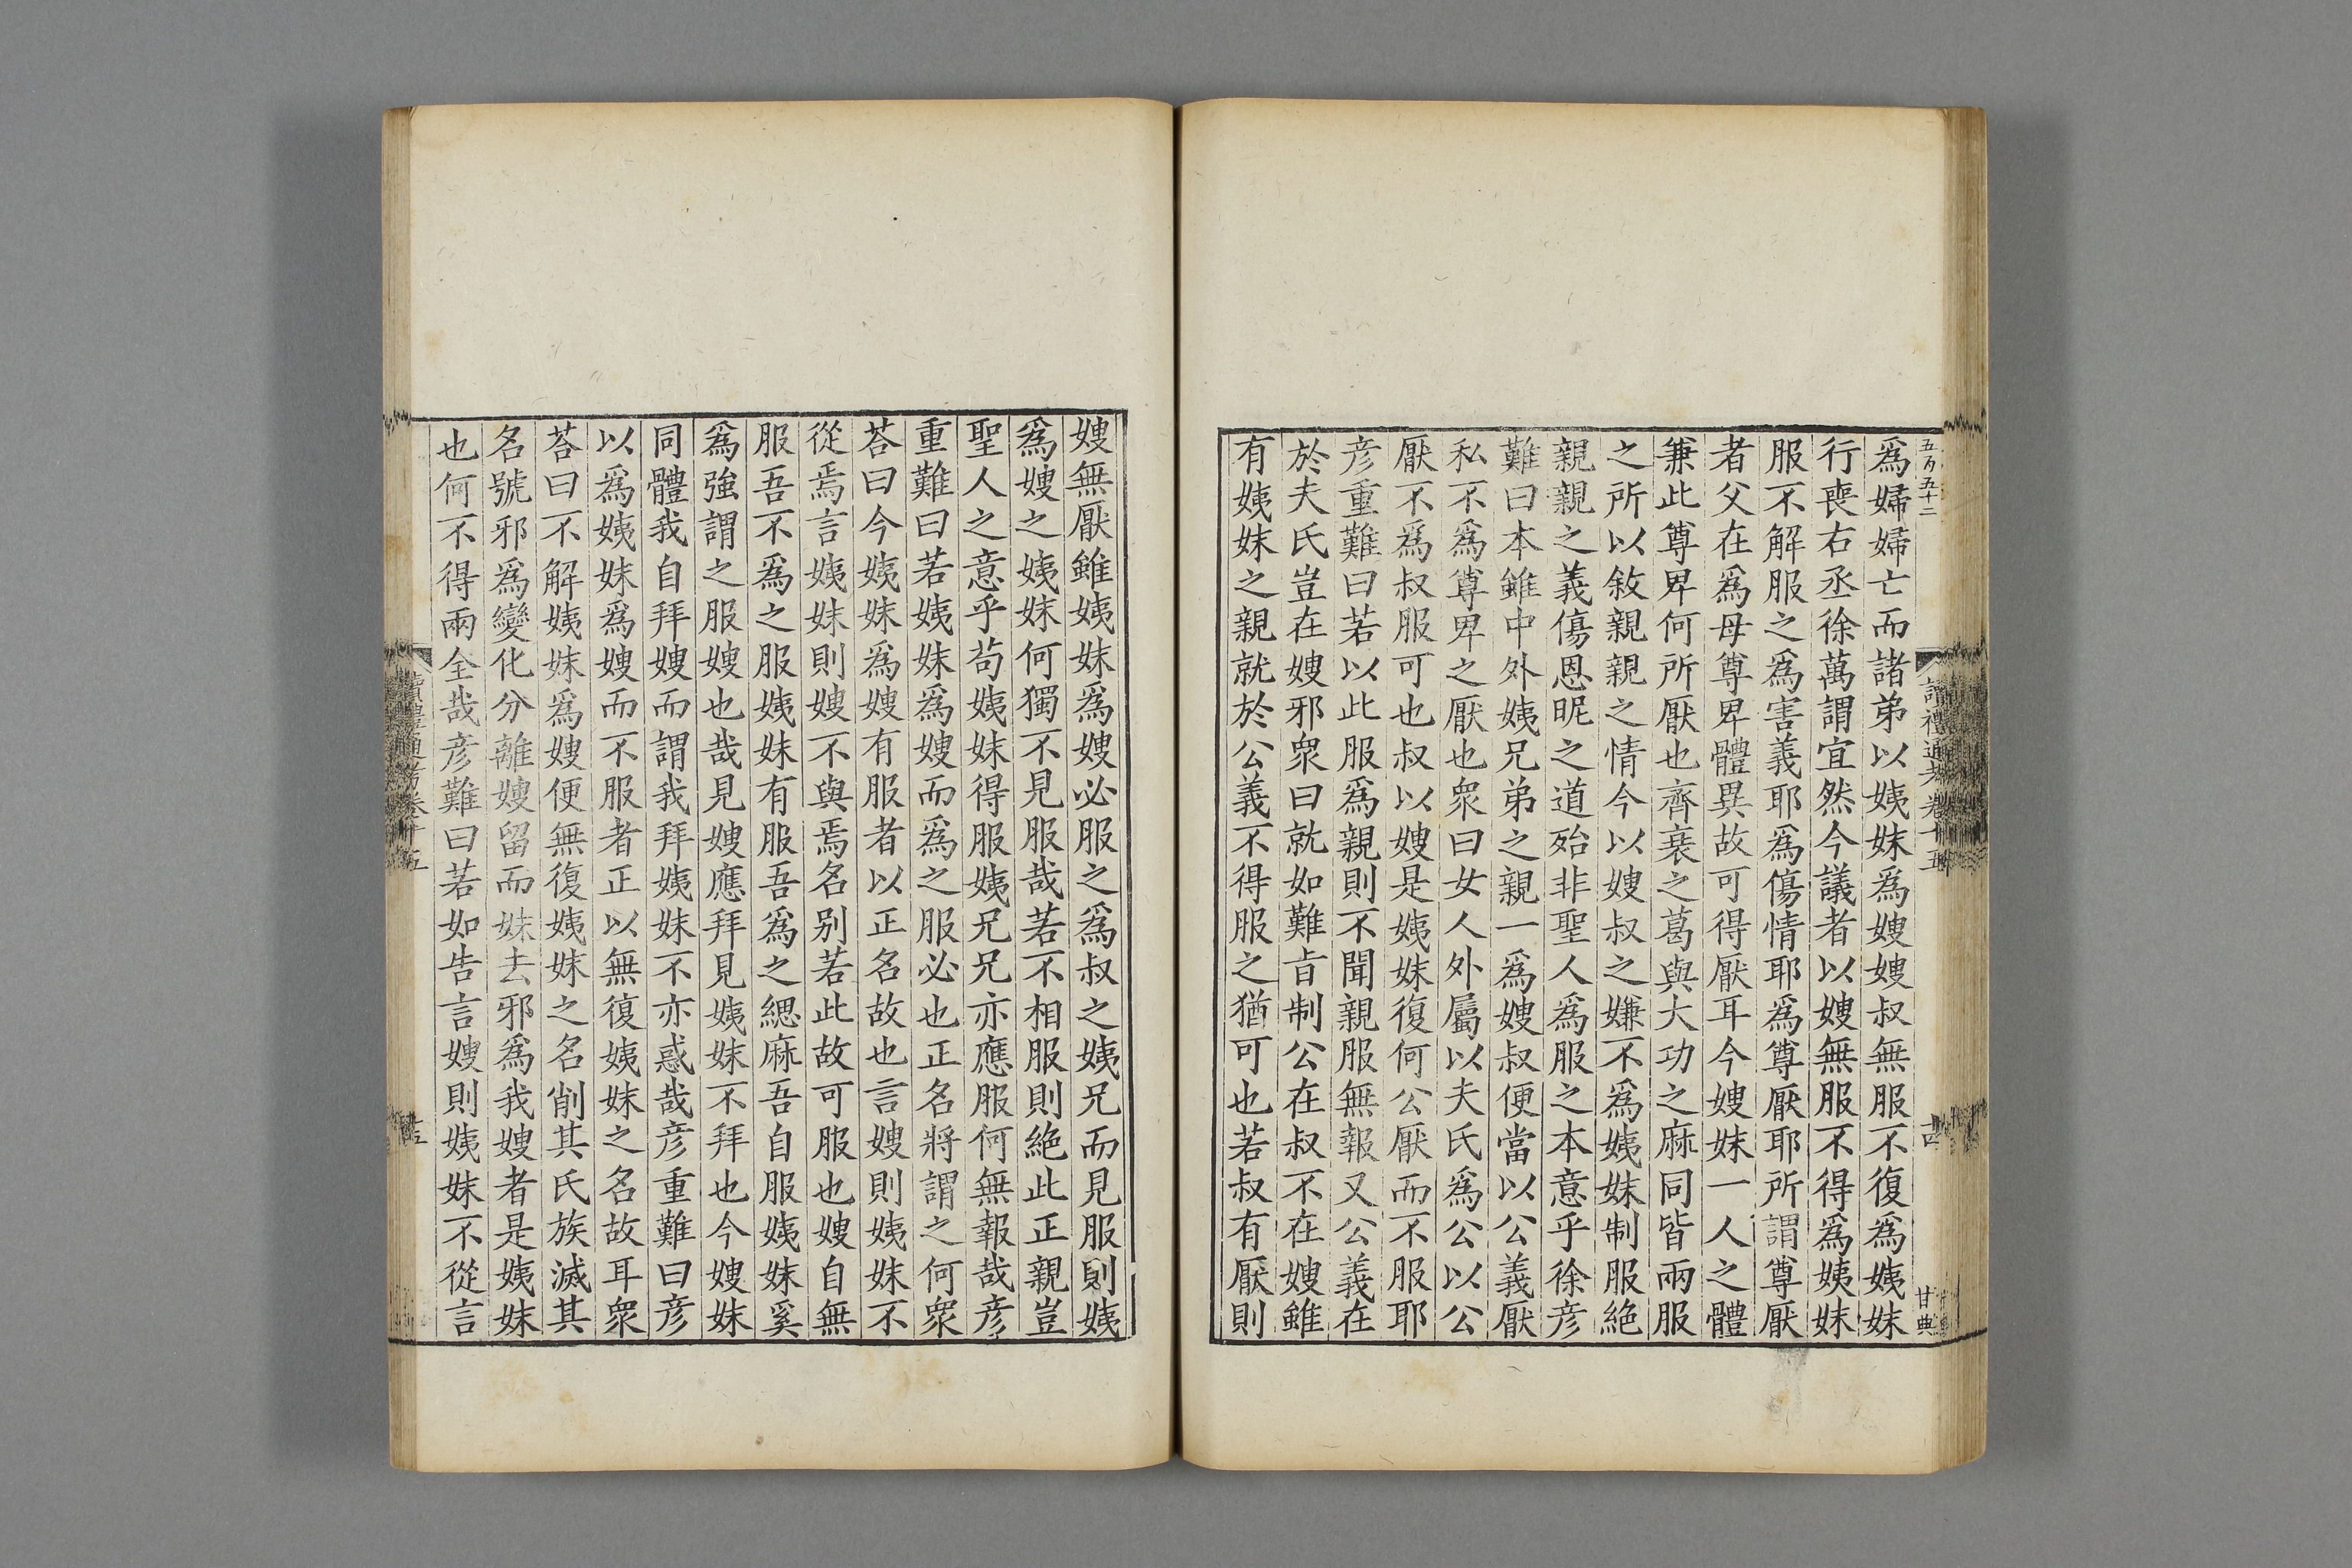 五百五十二
讀禮通考卷十五
十四
甘典
爲婦婦亡而諸弟以姨妹爲嫂嫂叔無服不復爲姨妹
行喪右丞徐萬謂宜然今議者以嫂無服不得爲姨妹
服不解服之爲害義耶爲傷情耶爲尊厭耶所謂尊厭
者父在爲母尊卑體異故可得厭耳今嫂妹一人之體
兼此尊卑何所厭也齊衰之葛與大功之麻同皆兩服
之所以敘親親之情今以嫂叔之嫌不爲姨妹制服絕
親親之義傷恩昵之道殆非聖人爲服之本意乎徐彥
難曰本雖中外姨兄弟之親一爲嫂叔便當以公義厭
私不爲尊卑之厭也衆曰女人外屬以夫氏爲公以公
厭不爲叔服可也叔以嫂是姨妹復何公厭而不服耶
彥重難曰若以此服爲親則不聞親服無報又公義在
於夫氏豈在嫂邪衆曰就如難旨制公在叔不在嫂雖
有姨妹之親就於公義不得服之猶可也若叔有厭則
嫂無厭雖姨妹爲嫂必服之爲叔之姨兄而見服則姨
爲嫂之姨妹何獨不見服哉若不相服則絕此正親豈
聖人之意乎茍姨妹得服姨兄兄亦應服何無報哉彥
重難曰若姨妹爲嫂而爲之服必也正名將謂之何衆
荅曰今姨妹爲嫂有服者以正名故也言嫂則姨妹不
從焉言姨妹則嫂不與焉名別若此故可服也嫂自無
服吾不爲之服姨妹有服吾爲之緦麻吾自服姨妹奚
爲強謂之服嫂也哉見嫂應拜見姨妹不拜也今嫂妹
同體我自拜嫂而謂我拜姨妹不亦惑哉彥重難曰彥
以爲姨妹爲嫂而不服者正以無復姨妹之名故耳衆
荅曰不解姨妹爲嫂便無復姨妹之名削其氏族滅其
名號邪爲變化分離嫂留而妹去邪爲我嫂者是姨妹
也何不得兩全哉彥難曰若如告言嫂則姨妹不從言
讀禮通考卷十五
十五